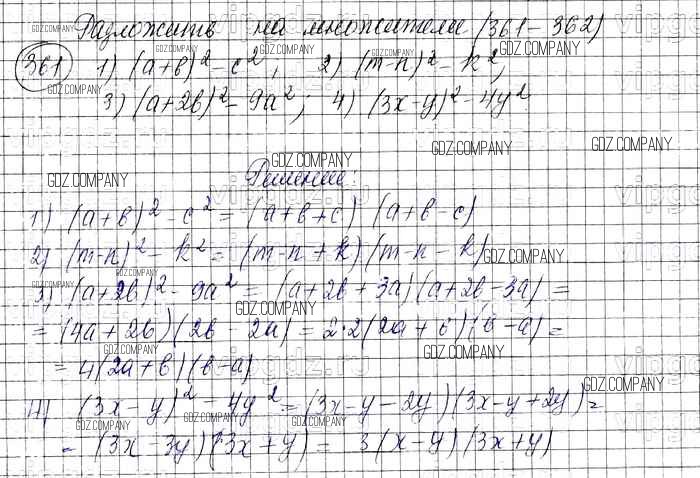 Разложить на множители (361-362)
361 1) (a+b)² - c²; 2) (m-n)² - k²;
3) (a+2b)² - 9a²; 4) (3x-y)² - 4y²
Решение:
1) (a+b)² - c² = (a+b+c) (a+b-c)
2) (m-n)² - k² = (m-n+k) (m-n-k)
3) (a+2b)² - 9a² = (a+2b+3a)(a+2b-3a) =
= (4a+2b)(2b-2a) = 2·2(2a+b)(b-a) =
= 4(2a+b)(b-a)
4) (3x-y)² - 4y² = (3x-y-2y)(3x-y+2y) =
= (3x-3y)(3x+y) = 3(x-y)(3x+y)
GDZ.COMPANY
vipgdz.ru